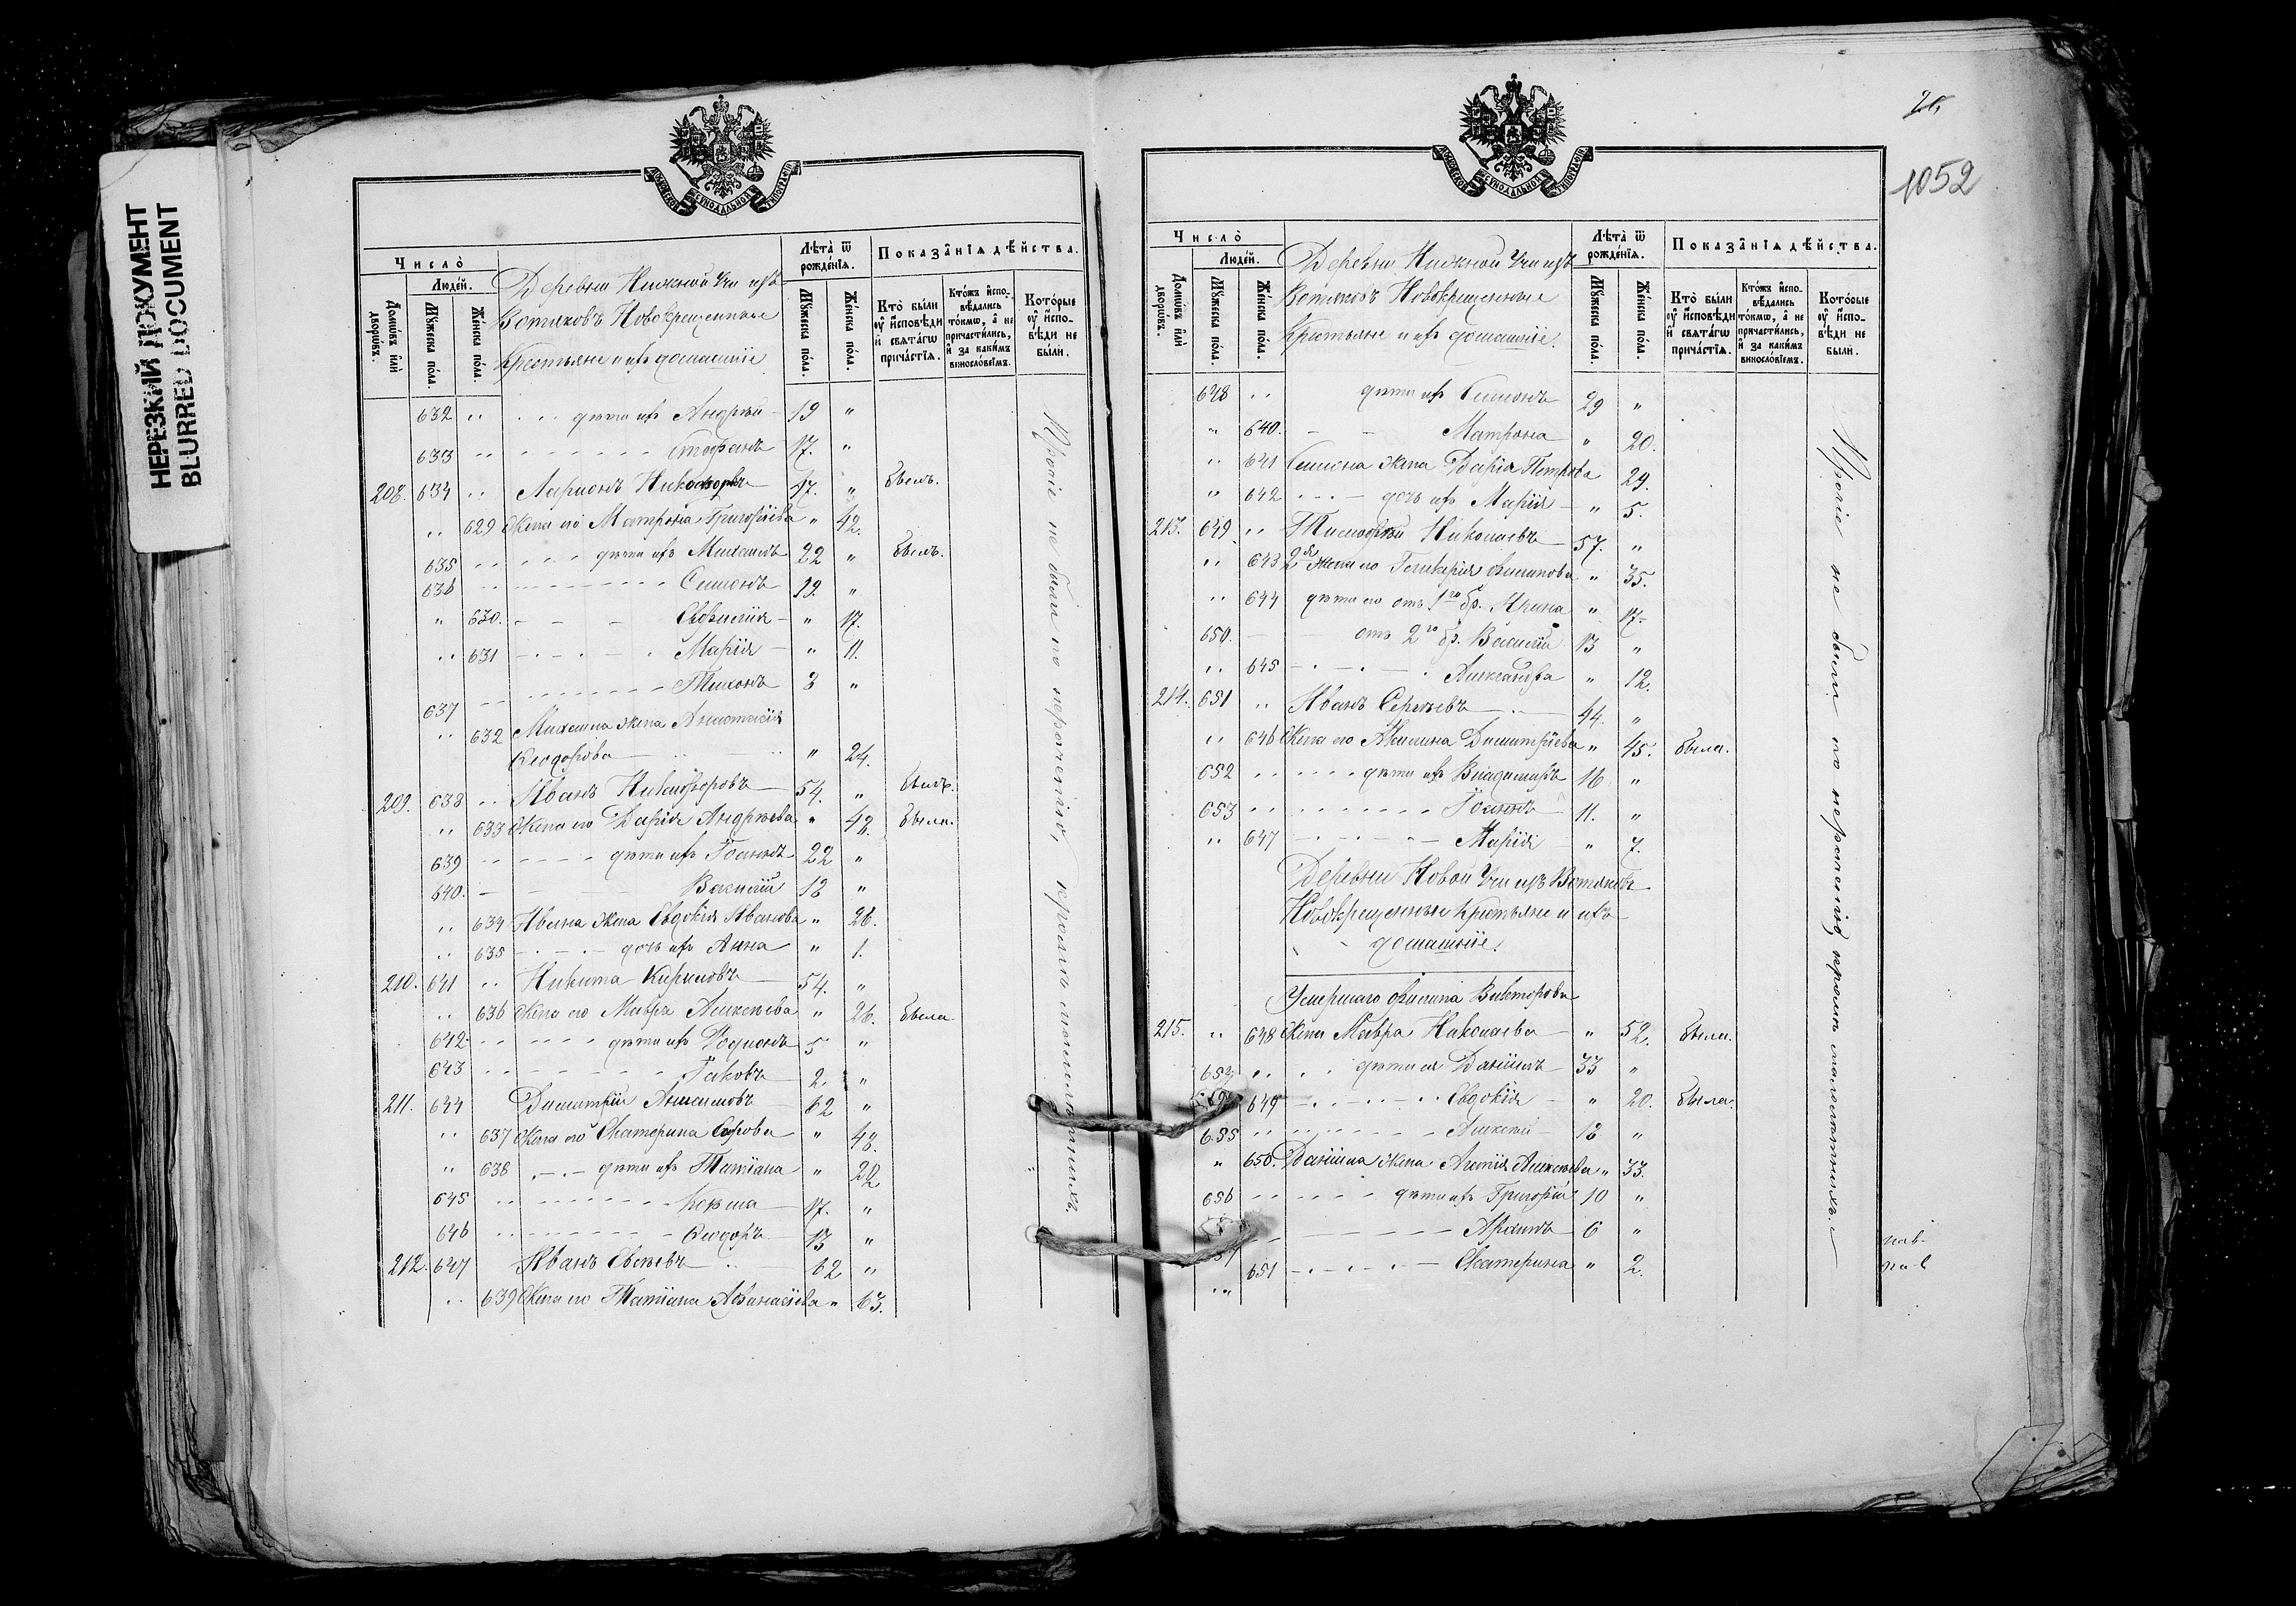 НЕРЕЗКИЙ ДОКУМЕНТ
BLURRED DOCUMENT
МОСКОВСКОЙ СѴНОДАЛЬНОЙ ТИПОГРАФІИ
Число̀
Людей.
Домѡвъ или дворѡвъ.
Мꙋжеска пола.
Женска пола.
Деревни Нижной Учи изъ
Вотяковъ Новокрещенные
Крестьяне и ихъ домашніе
Лѣта ѿ рожденїѧ.
Мꙋжеска пола.
Женска пола.
Показанїѧ дѣйства.
Кто были оу исповѣди и свѧтагѡ причастїѧ.
Ктожъ исповѣдались токмѡ, а не причастились, и за какимъ винословїемъ.
Которые оу исповѣди не были.
632 " дѣти ихъ Андрей 19 "
633 " Стефанъ 17. "
208. 634 " Ларионъ 17. " былъ.
" 629 Жена его Матрона Григорьева " 42.
635 " дѣти ихъ Михаилъ 22 " былъ.
636 Семенъ 19. "
" 630. Евфимія " 17.
" 631 Марія " 11.
637 " Тихонъ 3 "
" 632 Михаила жена Анастасія
Феодорова " 24.
209. 638 " Иванъ Никифоровъ 54. " былъ.
" 633 Жена его Дарія Андреева " 48. была.
639 " дѣти ихъ Іоаннъ 22 "
640. Василій 18 "
" 634 Ивана жена Евдокія Иванова " 26.
" 635 дочь ихъ Анна " 1.
210. 641 " Никита Кириловъ 54. "
" 636 Жена его Мавра Алексѣева " 26. была
642 " дѣти ихъ Родіонъ 5 "
643 " Іаковъ 2. "
211. 644 Димитрій 62 "
" 637 Жена его Екатерина " 48.
" 638 дѣти ихъ Татіана " 22
645 " Козма 17. "
646 " Феодоръ 13 "
212. 647 Иванъ Евсѣевъ 62 "
" 639 Жена его Татіана Аѳанасіева " 63.
Прочіе не были по нераченію, кромѣ малолѣтнихъ.
26
1052
МОСКОВСКОЙ СѴНОДАЛЬНОЙ ТИПОГРАФІИ
Число̀
Людей.
Домѡвъ или дворѡвъ.
Мꙋжеска пола.
Женска пола.
Деревни Нижной Учи изъ
Вотяковъ Новокрещенные
Крестьяне и ихъ домашніе.
Лѣта ѿ рожденїѧ.
Мꙋжеска пола.
Женска пола.
Показанїѧ дѣйства.
Кто были оу исповѣди и свѧтагѡ причастїѧ.
Ктожъ исповѣдались токмѡ, а не причастились, и за какимъ винословїемъ.
Которые оу исповѣди не были.
648 " дѣти ихъ Симеонъ 29 "
" 640. Матрона " 20.
" 641 Симеона жена Дарія Петрова 29.
" 642 дочь ихъ Марія " 5.
213. 649 " Тимофей Николаевъ 57. "
" 643 2я жена его Гликерія Филипова " 35.
" 644 дѣти его отъ 1го бр. Ирина " 17.
650. отъ 2го бр. Василій 13 "
" 645 Александра " 12.
214. 651 " Иванъ Сергѣевъ 44. "
" 646 Жена его Акилина Димитріева " 45. была.
652 " дѣти ихъ Владимиръ 16 "
653 Іоаннъ 11. "
" 647 Марія " 7.
Деревни Новой Учи изъ Вотяковъ
Новокрещенные Крестьяне и ихъ
домашніе.
Умершаго Филипа Викторова
215. " 648 Жена Мавра Николаева " 52. была.
654 " дѣти ея Даніилъ 33 "
649 Евдокія " 20. была.
655 " Алексѣй 18 "
" 650. Даніила жена Агапія Алексѣева " 33.
656 " дѣти ихъ Григорій 10 "
6 "
" 651 Екатерина " 2.
Прочіе не были по нераченію кромѣ малолѣтнихъ.